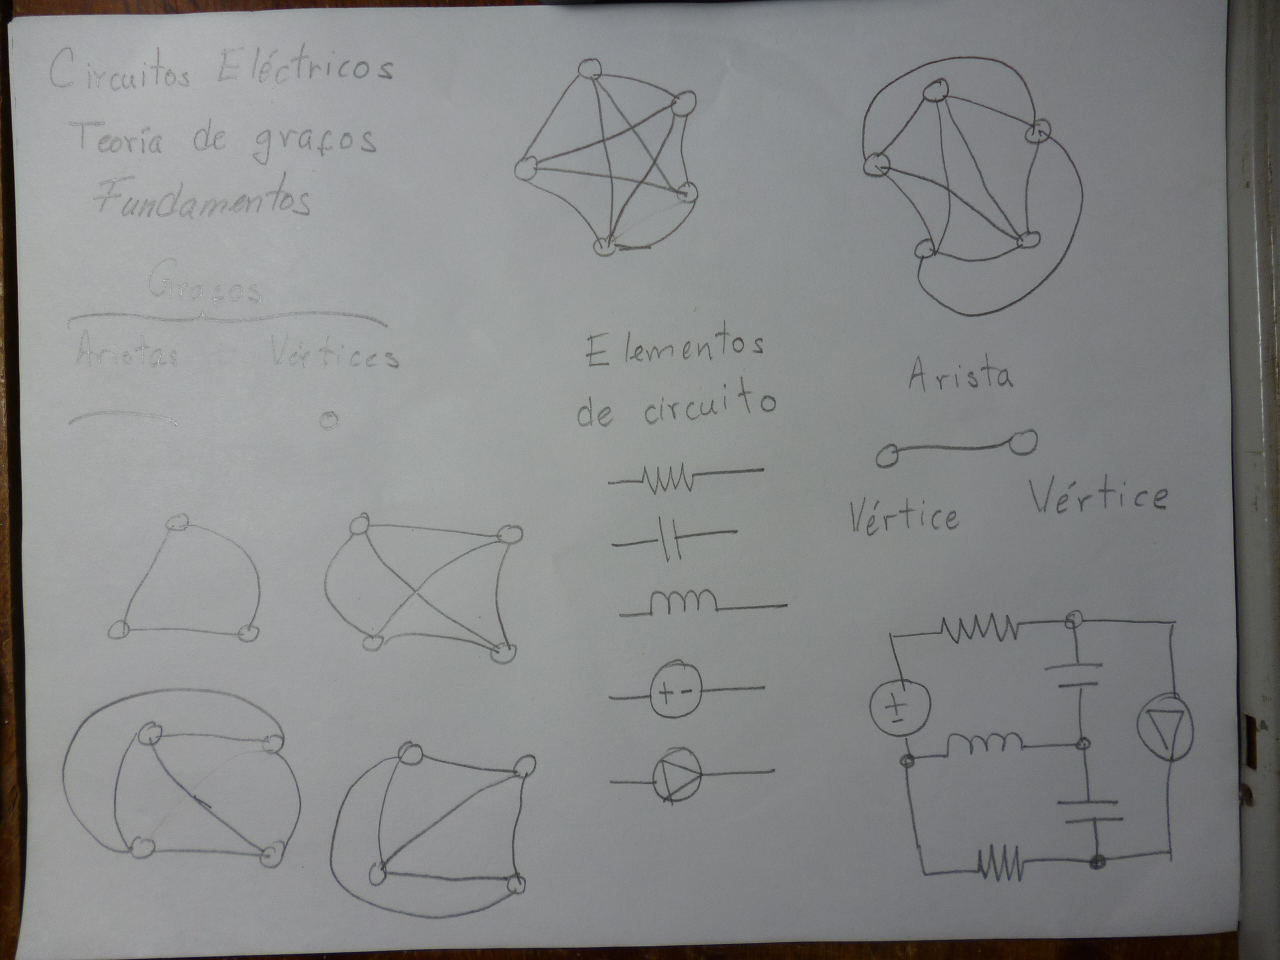 Circuitos Eléctricos
Teoría de grafos
Fundamentos
Grafos
Aristas Vértices
Elementos
de circuito
Arista
Vértice Vértice